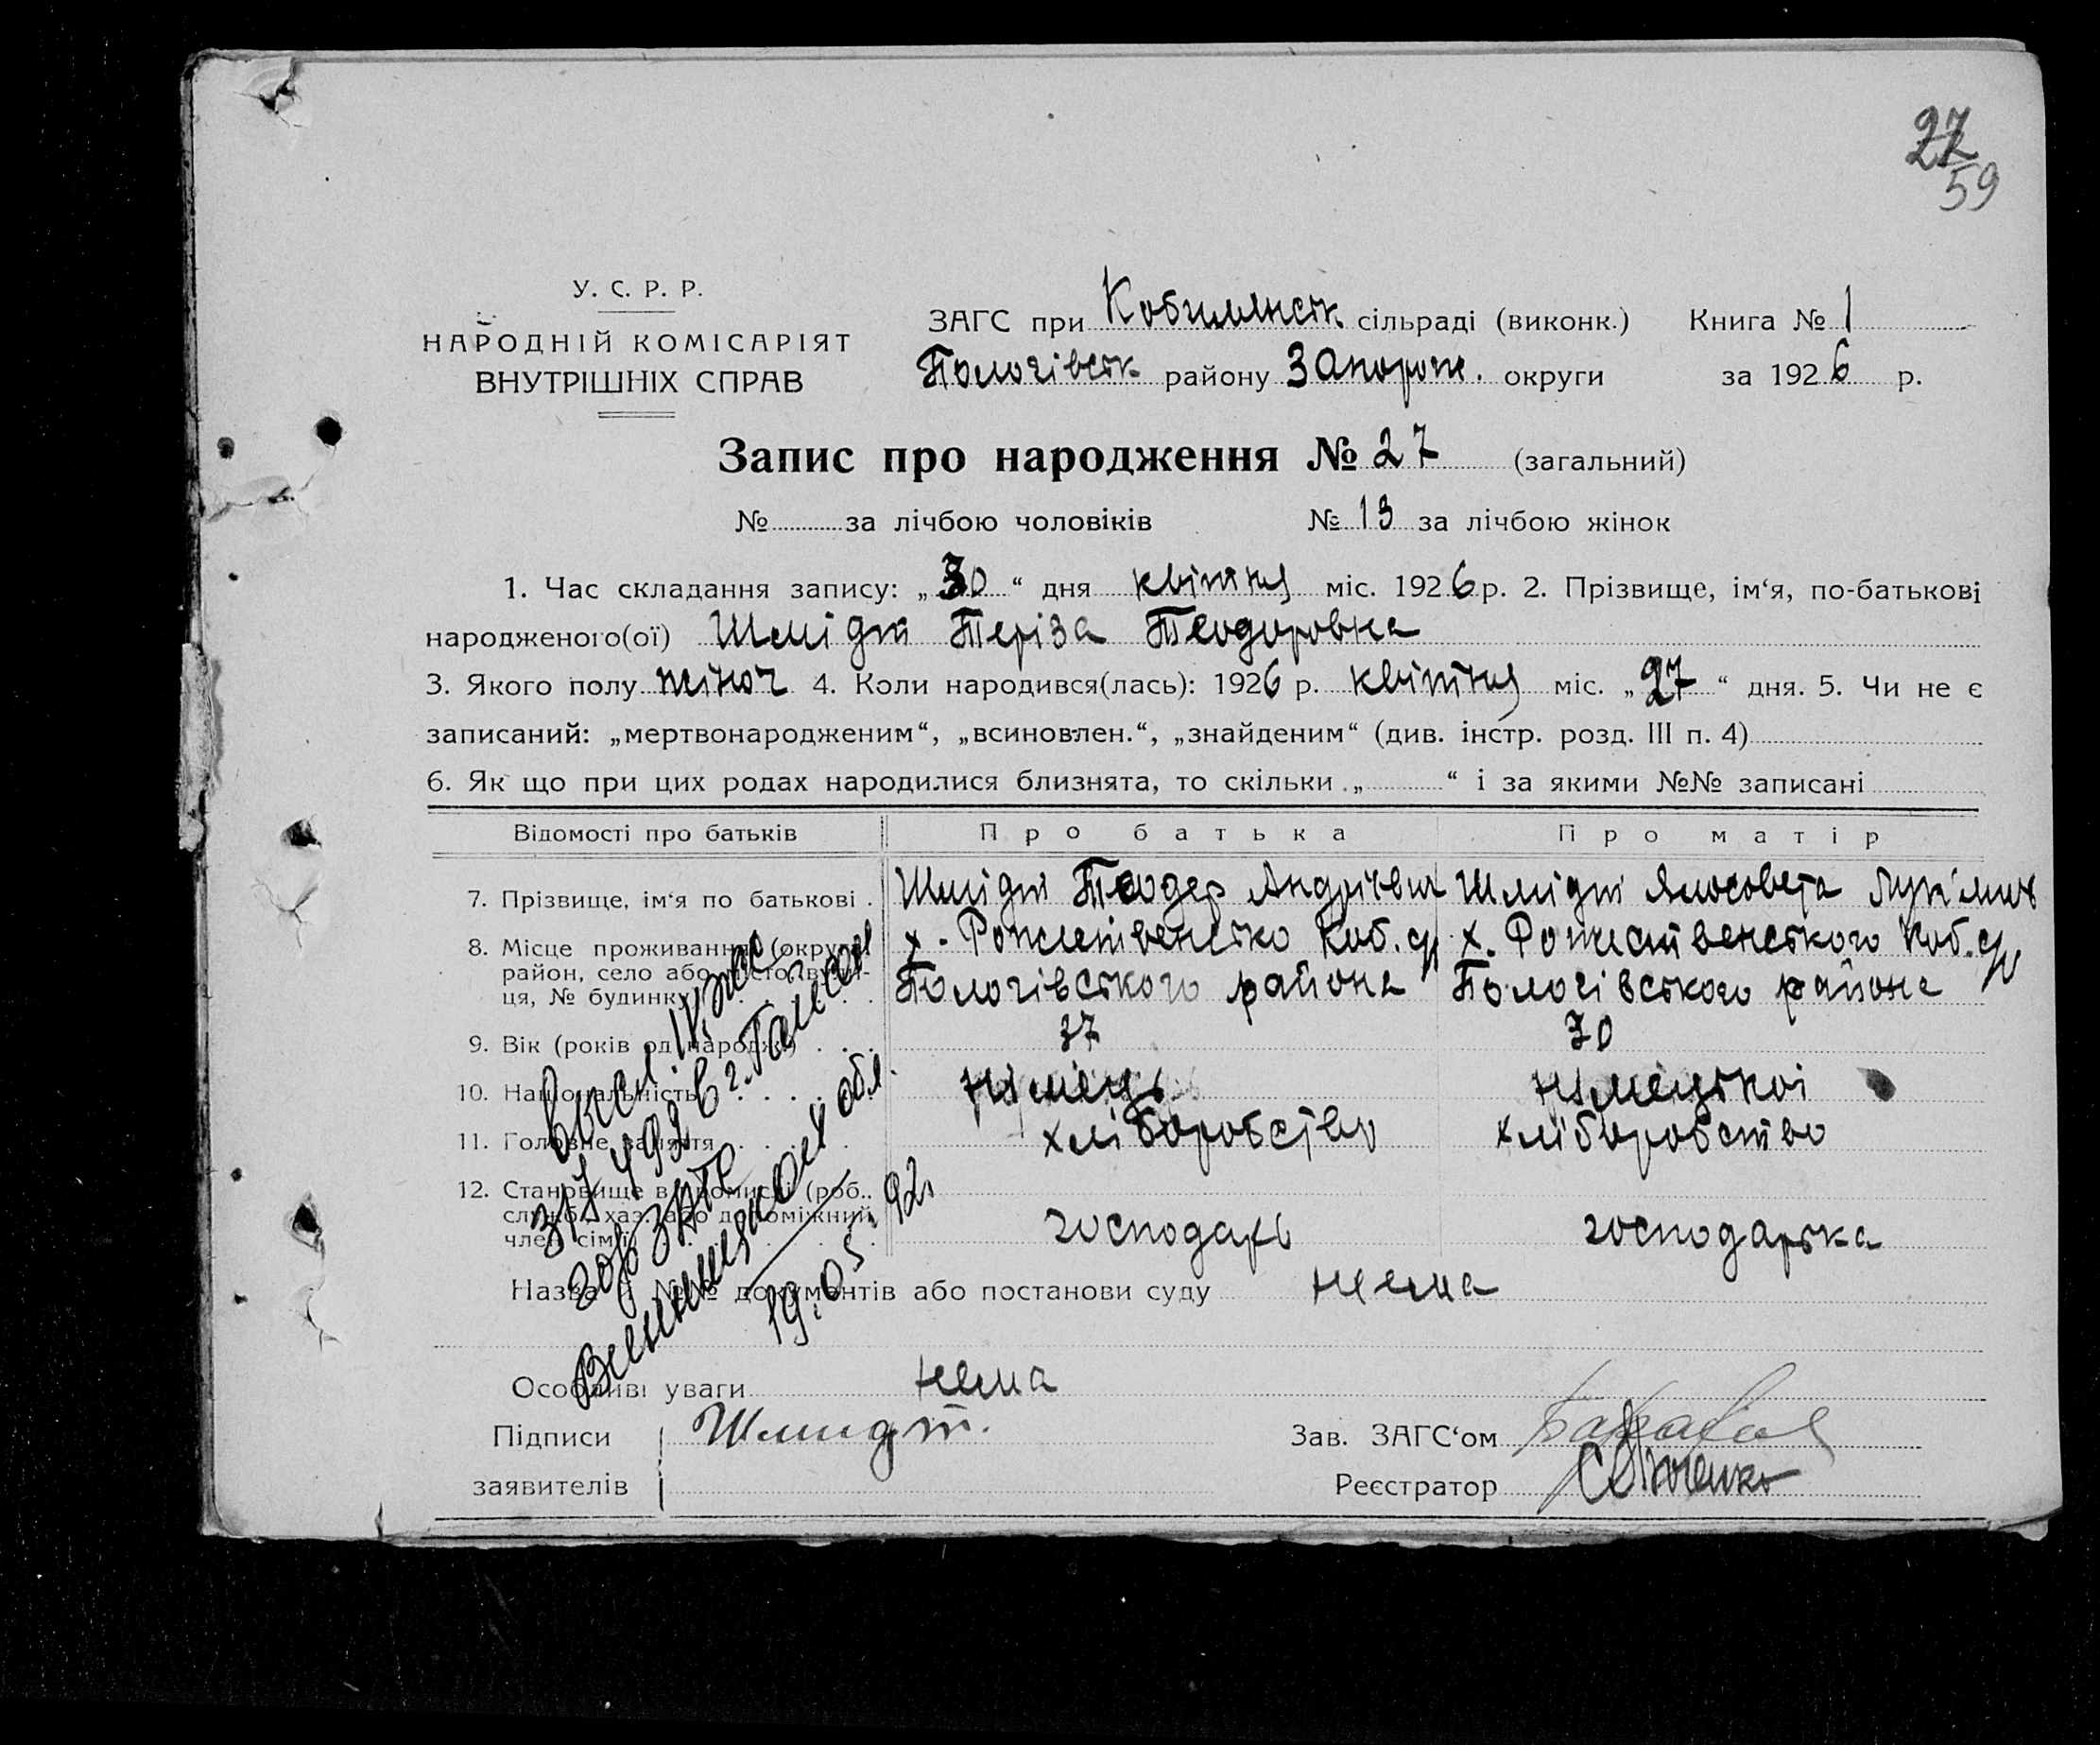 27
59
У. С. Р. Р.
НАРОДНІЙ КОМІСАРІЯТ
ВНУТРІШНІХ СПРАВ
ЗАГС при сільраді (виконк.) Книга № 1
Пологівськ району Запорож. округи за 1926 р.
Запис про народження № 27 (загальний)
№ за лічбою чоловіків № 13 за лічбою жінок
1. Час складання запису: „30“ дня квітня міс. 1926 р. 2. Прізвище, ім‘я, по-батькові
народженого(ої) Шмідт Теріза Теодоровна
3. Якого полу жіноч 4. Коли народився(лась): 1926 р. квітня міс. „27“ дня. 5. Чи не є
записаний: „мертвонародженим“, „всиновлен.“, „знайденим“ (див. інстр. розд. III п. 4)
6. Як що при цих родах народилися близнята, то скільки „ “ і за якими №№ записані
Відомості про батьків Про батька Про матір
7. Прізвище, ім‘я по батькові . Шмідт Теодер Андрієвич Шмідт
8. Місце проживання (округа, х. Рожественсько Коб. с/р х. Рожественського Коб. с/р
район, село або місто, вули-
ця, № будинку) Пологівського района Пологівського района
9. Вік (років од народж.) . . . 37 30
10. Національність . . . . . німець німецькоі
11. Головне заняття . . . . хліборобство хліборобство
12. Становище в промислі (роб.,
служб., хаз. або допоміжний
член сім‘ї) господарь господарька
Назва й №№ документів або постанови суду нема
Особливі уваги нема
Підписи Шмидт. Зав. ЗАГС‘ом
заявителів Реєстратор
в г.
ЗАГС
обл.
19.05.92